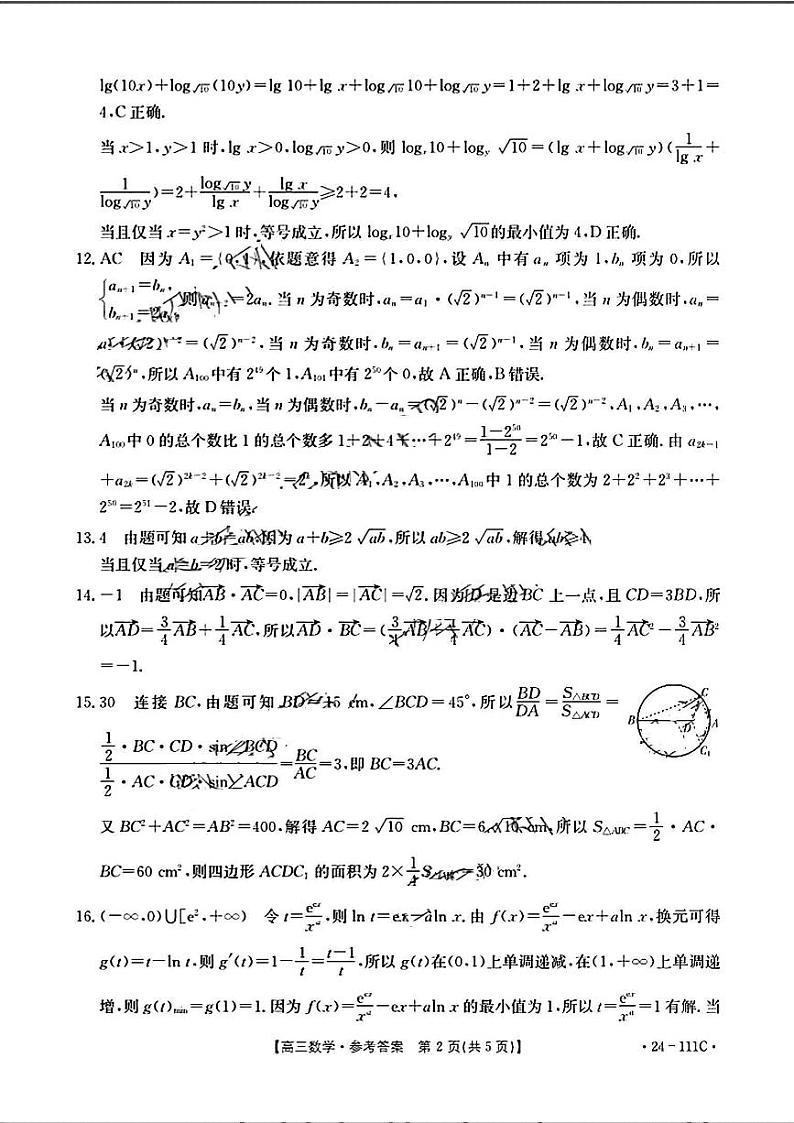 lg(10x)+log_{√10}(10y)=lg 10+lg x+log_{√10}10+log_{√10}y=1+2+lg x+log_{√10}y=3+1=
4,C正确.
当x>1,y>1时,lg x>0,log_{√10}y>0,则log_x10+log_y √10=(lg x+log_{√10}y)(1/lg x+
1/log_{√10}y)=2+log_{√10}y/lg x+lg x/log_{√10}y≥2+2=4,
当且仅当x=y²>1时,等号成立,所以log_x10+log_y √10的最小值为4,D正确.
12. AC 因为A₁= 依题意得A₂={1,0,0},设Aₙ中有aₙ项为1,bₙ项为0,所以
{aₙ₊₁=bₙ,
bₙ₊₁= 则 =2aₙ.当n为奇数时,aₙ=a₁·(√2)ⁿ⁻¹=(√2)ⁿ⁻¹,当n为偶数时,aₙ=
=(√2)ⁿ⁻²,当n为奇数时,bₙ=aₙ₊₁=(√2)ⁿ⁻¹,当n为偶数时,bₙ=aₙ₊₁=
(√2)ⁿ,所以A₁₀₀中有2⁴⁹个1,A₁₀₁中有2⁵⁰个0,故A正确,B错误.
当n为奇数时,aₙ=bₙ,当n为偶数时,bₙ-aₙ=(√2)ⁿ-(√2)ⁿ⁻²=(√2)ⁿ⁻²,A₁,A₂,A₃,…,
A₁₀₀中0的总个数比1的总个数多1+2+4+…+2⁴⁹=(1-2⁵⁰)/(1-2)=2⁵⁰-1,故C正确.由a₂ₖ₋₁
+a₂ₖ=(√2)²ᵏ⁻²+(√2)²ᵏ⁻²= 所以A₁,A₂,A₃,…,A₁₀₀中1的总个数为2+2²+2³+…+
2⁵⁰=2⁵¹-2,故D错误.
13. 4 由题可知a+b=ab,因为a+b≥2√ab,所以ab≥2√ab,解得
当且仅当 时,等号成立.
14. -1 由题可知AB·AC=0,|AB|=|AC|=√2.因为D是边BC上一点,且CD=3BD,所
以AD=3/4AB+1/4AC,所以AD·BC=(3/4AB+1/4AC)·(AC-AB)=1/4AC²-3/4AB²
=-1.
15. 30 连接BC,由题可知BD=15 cm,∠BCD=45°,所以BD/DA=S_{△BCD}/S_{△ACD}=
(1/2·BC·CD·sin∠BCD)/(1/2·AC·CD·sin∠ACD)=BC/AC=3,即BC=3AC.
B D C A C₁
又BC²+AC²=AB²=400,解得AC=2√10 cm,BC=6√10 cm,所以S_{△ABC}=1/2·AC·
BC=60 cm²,则四边形ACDC₁的面积为2×1/4S_{△ABC}=30 cm².
16. (-∞,0)∪[e²,+∞) 令t=e^{ex}/x^a,则ln t=ex-aln x.由f(x)=e^{ex}/x^a-ex+aln x,换元可得
g(t)=t-ln t,则g′(t)=1-1/t=(t-1)/t,所以g(t)在(0,1)上单调递减,在(1,+∞)上单调递
增,则g(t)_{min}=g(1)=1.因为f(x)=e^{ex}/x^a-ex+aln x的最小值为1,所以t=e^{ex}/x^a=1有解.当
【高三数学·参考答案 第2页(共5页)】 ·24-111C·